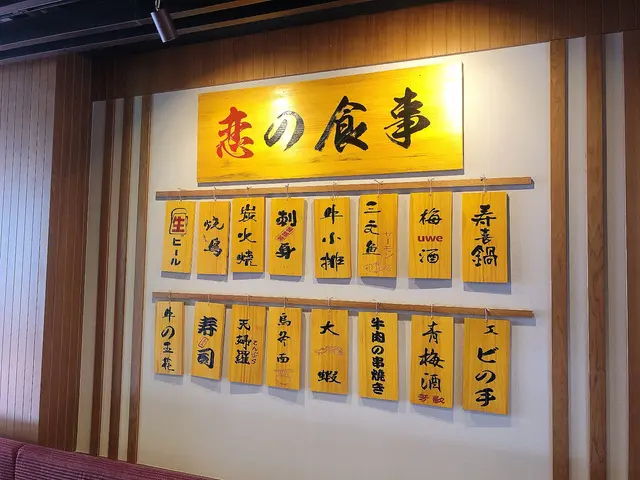 恋の食事
生ビール
焼鳥
炭火燒
刺身
牛小排
三文鱼
梅uwe酒
寿喜鍋
牛の五花
寿司
天婦羅
てんぷら
烏冬面
大蝦
牛肉の串焼き
青梅酒
エビの手